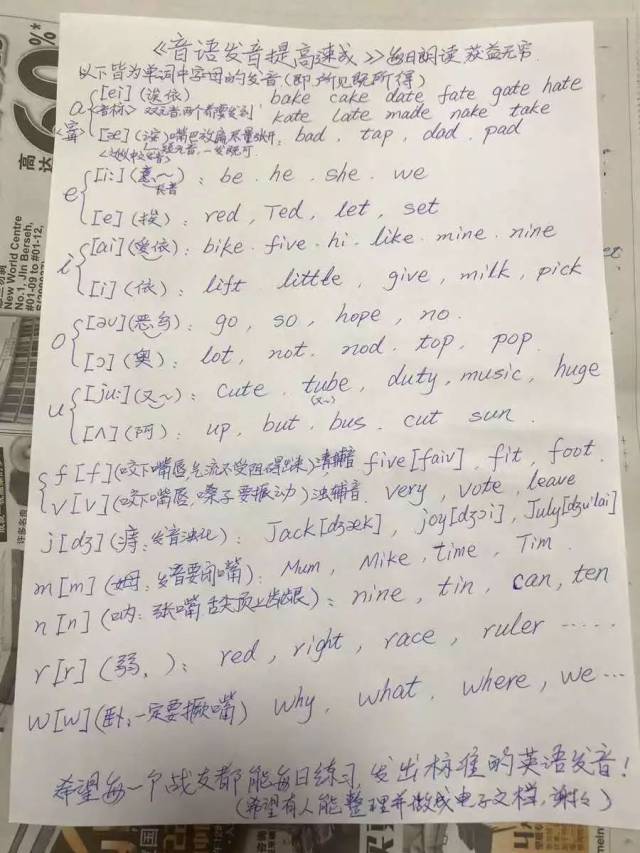 《音语发音提高速成》每日朗读 获益无穷
以下皆为单词中字母的发音(即所见既所得)
a [ei] (诶依) bake cake date fate gate hate
<音标> 双元音两个都要发到 kate late made nake take
[æ] (诶) 嘴巴放扁尽量张开: bad, tap, dad, pad
短元音,一发既可
e [i:] (意~): be, he, she, we
长音
[e] (挨): red, Ted, let, set
i [ai] (爱依): bike, five, hi, like, mine, nine
[i] (依): lift little, give, milk, pick
o [əu] (恶乌) go, so, hope, no.
[ɔ] (奥): lot, not, nod, top, pop.
u [ju:] (又~): cute, tube, duty, music, huge
(又~)
[ʌ] (阿): up, but, bus, cut sun.
f [f] (咬下嘴唇,气流不受阻碍出来) 清辅音 five [faiv], fit, foot.
v [v] (咬下嘴唇,嗓子要振动) 浊辅音 very, vote, leave
j [dʒ] (发音浊化): Jack [dʒæk], joy [dʒɔi], July [dʒu'lai]
m [m] (姆: 发音要闭嘴): Mum, Mike, time, Tim.
n [n] (呐: 张嘴舌尖顶上齿龈): nine, tin, can, ten
r [r] (弱, ): red, right, race, ruler ......
w [w] (卧: 一定要撅嘴) why, what, where, we ...
希望每一个战友都能每日练习,发出标准的英语发音!
(希望有人能整理并做成电子文档,谢谢)
60%*
高达
New World Centre
No.1, Jln Berseh,
#01-09 to #01-12,